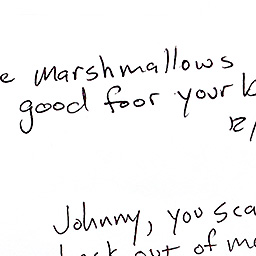 e marshmallows
good foor your k
12/
Johnny, you sca
out of me